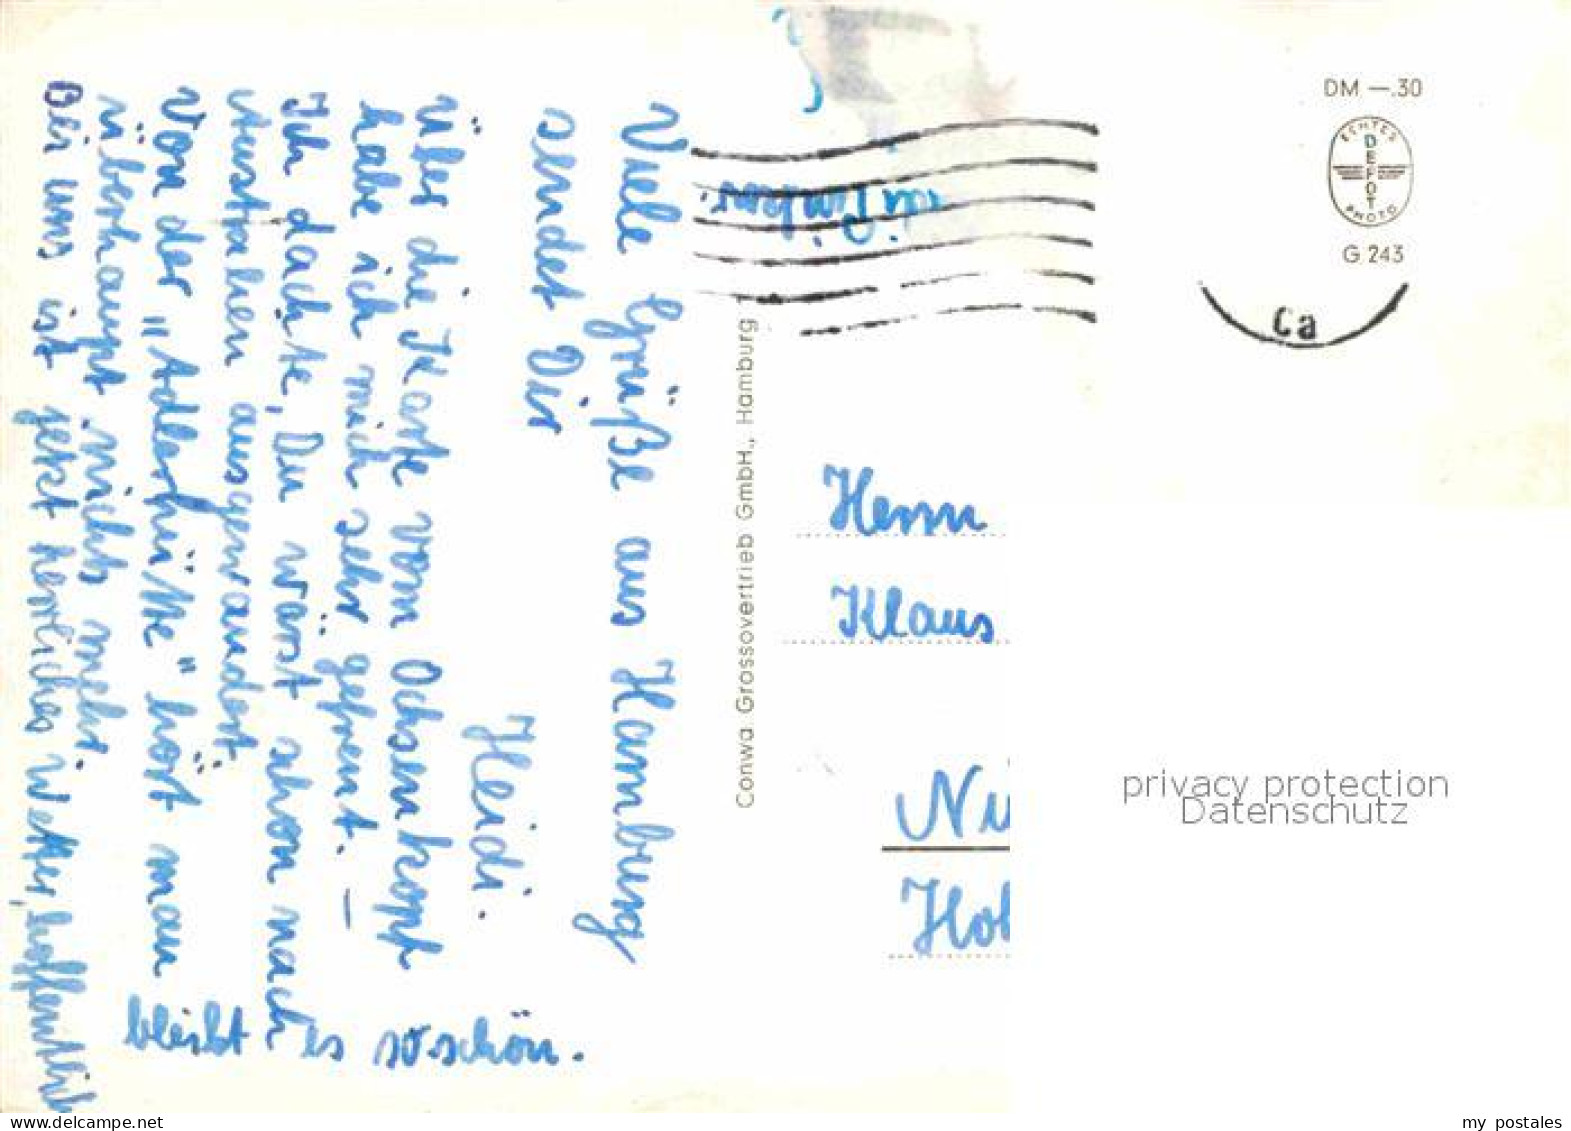 Viele Grüße aus Hamburg
sendet Dir
Heidi.
Über die Karte vom Ochsenkopf
habe ich mich sehr gefreut. —
Ich dachte, Du wärst schon nach
Australien ausgewandert.
Von der „Adlerhütte" hört man
überhaupt nichts mehr.
Bei uns ist jetzt herrliches Wetter, hoffentlich
bleibt es so schön.
Conwa Grossovertrieb GmbH., Hamburg
DM —.30
ECHTES
DEFOT
PHOTO
G 243
Ca
Herrn
Klaus
privacy protection
Datenschutz
www.delcampe.net
my_postales